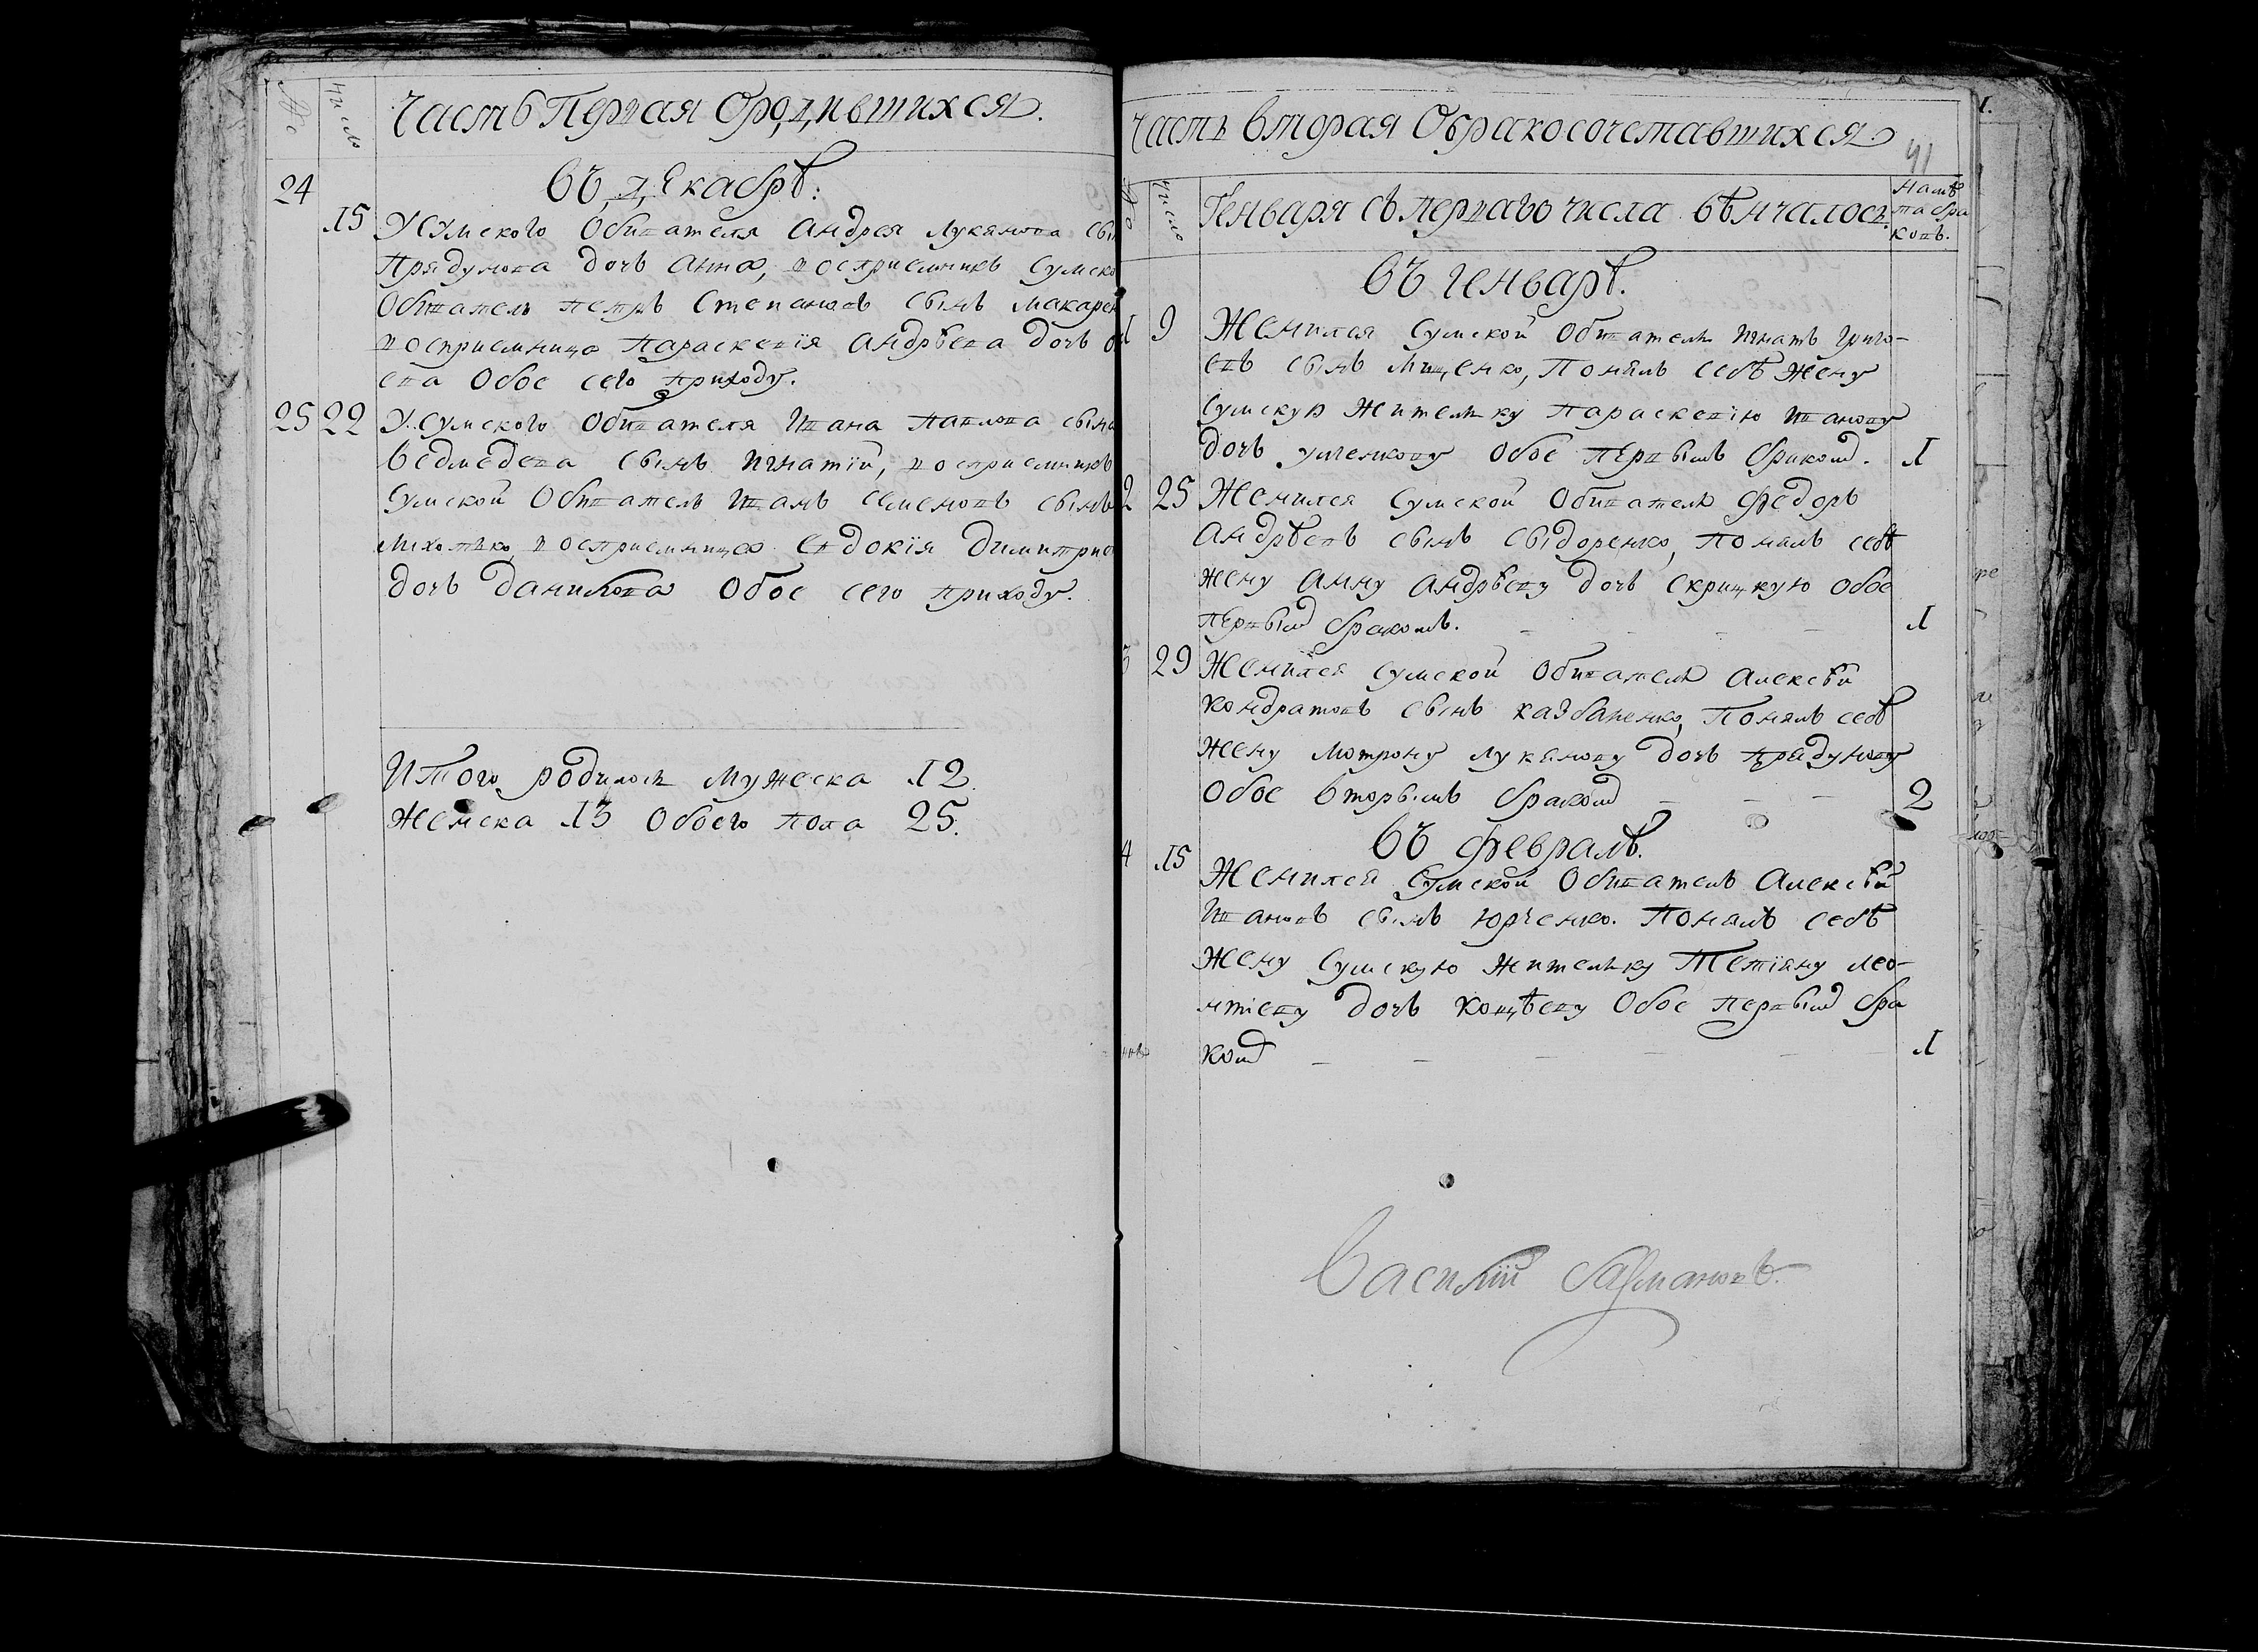 №
число
Часть Первая О родившихся.
Въ декабрѣ:
24
15 У Сумского Обывателя Андрея Лукянова сы
Прядунова дочь Анна, восприемникъ Сумско
Обыватель петръ Степановъ сынъ Макарен
восприемница Параскевія Андрѣева дочь
ева Обое сего приходу.
25 22 У Сумского Обывателя Ивана Павлова сына
Ведмедева сынъ Игнатій, восприемникъ
Сумской Обыватель Иванъ Семеновъ сынъ
восприемница Евдокія Димитрие
дочь Данилова Обое сего приходу.
Итого родилось Мужеска 12.
Женска 13 Обоего пола 25.
Часть вторая О бракосочетавшихся
41
№
число
Генваря съ перваго числа вѣнчалось.
Въ генварѣ.
1 9 Женился Сумской Обыватель Игнатъ григо-
евъ сынъ Мищенко, Понялъ себѣ жену
Сумскую жительку Параскевію Иванову
дочь Обое первымъ бракомъ. 1
2 25 Женился Сумской Обыватель Федоръ
Андрѣевъ сынъ Сыдоренко, Понялъ себѣ
жену Анну Андрѣеву дочь Скрицкую Обое
первымъ бракомъ. 1
3 29 Женился Сумской Обыватель Алексѣй
Кондратовъ сынъ Казбаненко, Понялъ себѣ
жену Мотрону Лукянову дочь прядунову
Обое вторымъ бракомъ 2
Въ февралѣ.
4 15 Женился Сумской Обыватель Алексѣй
Ивановъ сынъ Юрченко. Понялъ себѣ
жену Сумскую жительку Тетіяну лео-
нтіеву дочь Концѣву Обое первымъ бра
комъ 1
Василій